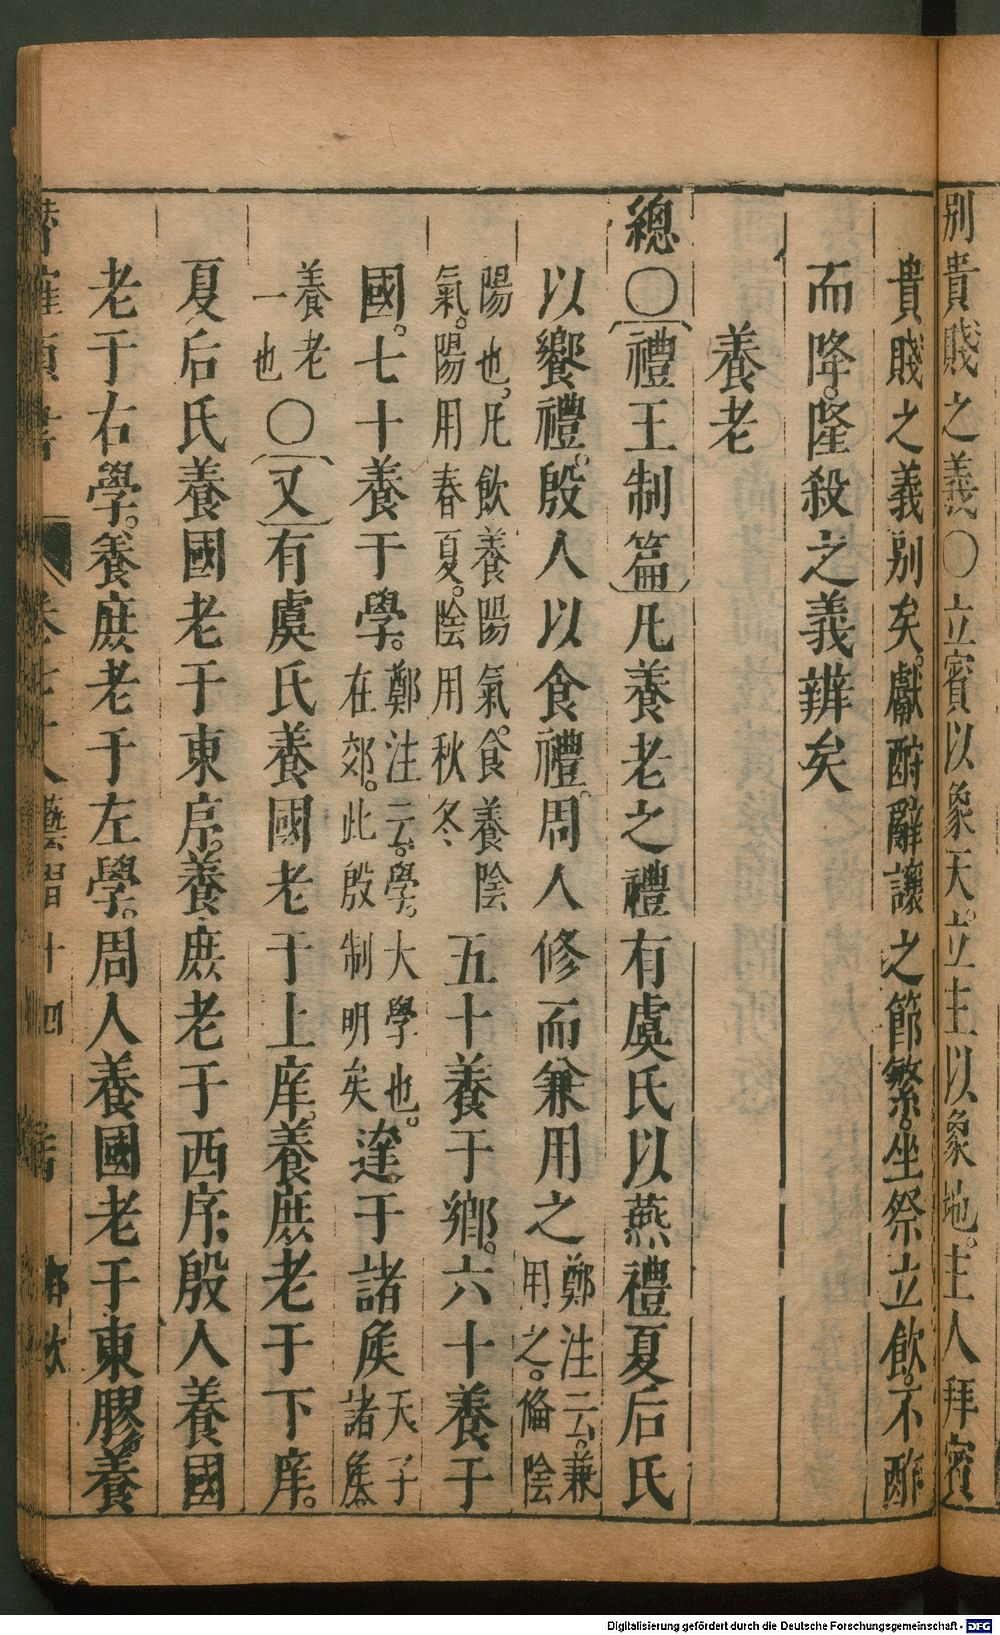 別貴賤之義〇立賓以象天。立主以象地。主人拜賓
貴賤之義別矣。獻酬辭讓之節繁。坐祭立飲。不酢
而降。隆殺之義辨矣
養老
總〇禮王制篇凡養老之禮有虞氏以燕禮夏后氏
以饗禮。殷人以食禮。周人修而兼用之鄭注云。兼用之。脩陰
陽也。凡飲養陽氣。食養陰氣。陽用春夏。陰用秋冬五十養于鄉。六十養于
國。七十養于學。鄭注云。學。大學也。在郊。此殷制明矣達于諸侯天子諸侯
養老一也〇又有虞氏養國老于上庠。養庶老于下庠。
夏后氏養國老于東序。養庶老于西序。殷人養國
老于右學。養庶老于左學。周人養國老于東膠養
卷七十八藝習十四
Digitalisierung gefördert durch die Deutsche Forschungsgemeinschaft - DFG